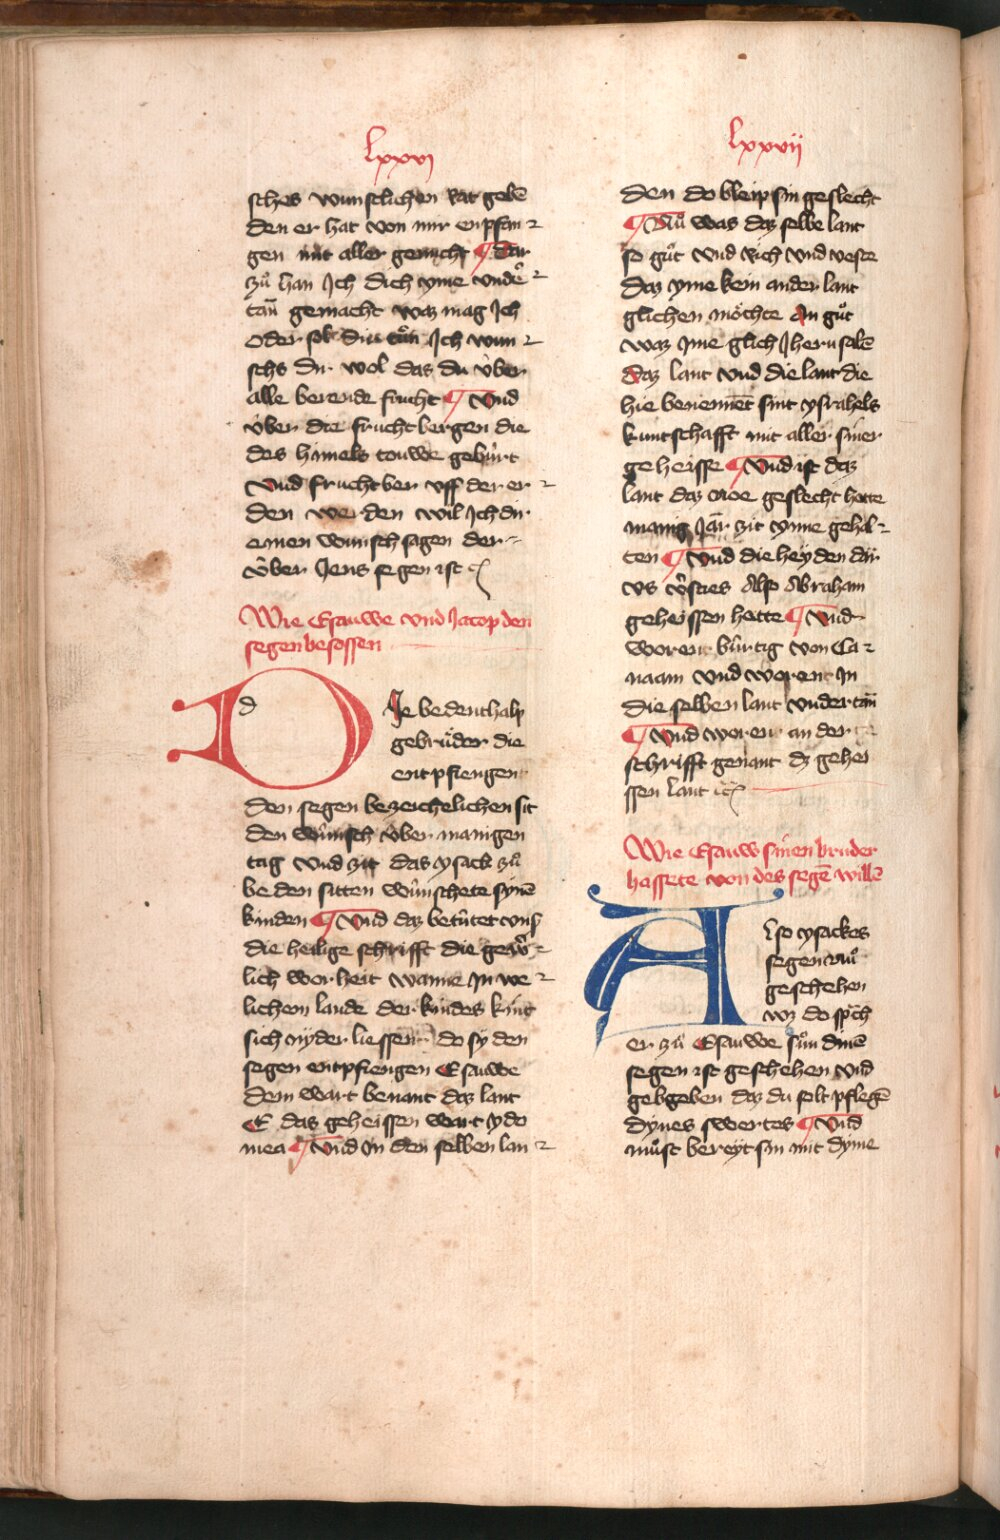 lxxvi
sches wunsclichen Rat gebē
den er hat von mir enpfan
gen mit aller genucht ¶ Dar
zů han Ich dich yme undē
tan gemacht waz mag Ich
oder sol din tůn Ich wun
schs dir wol das du v̂ber
alle berende frucht ¶ Vnd
v̂ber die fruchtbergen die
des himels touwe gebûrt
Vnd fruchtber vff der er
den werden wil Ich dir
einen wunsch sagen der
v̂ber Jens segen ist
Wie Esauwe vnd Jacop den
segen besassen
d Ie bedenthalp
gebrůder die
entpfiengen
den segen bezeichelichen sit
den wûnsch v̂ber manigen
tag vnd zit das ysack zů
beden sitten wûnschete synē
kinden ¶ Vnd daz betûtet vns
die heilige schrifft die gewr̂
lich worheit wanne In we
lichem lande der kindes kint
sich nyder liessen do sy den
segen entpfiengen Esauwe
dem wart benant daz lant
E das geheissen wart ydo
mea ¶ Vnd In den selben lan
lxxvii
den do bleip sin geslecht
¶ Nů was daz selbe lant
so gůt vnd Rich vnd veste
daz yme kein ander lant
glichen mŏchte An gůt
waz Ime glich Jherusalē
Daz lant vnd die lant die
hie benennēt sint ysrahels
kuntschafft mit aller siner
geheisse ¶ Vnd ist daz
lant daz noe geslecht hette
manig Jar zit ynne gehal
ten ¶ Vnd die heyden dar
vs v̂sties Also Abraham
geheissen hette ¶ Vnd
worent bûrtig von Ca
naam vnd worent In
die selben lant vndertān
¶ Vnd worent an der
schrifft genant dz gehei
ssen lant
Wie Esauw sinen bruder
hassete von des segē willē
Also ysackes
segen waz
geschehen
wz do sprach
er zů Esauwe sůn dinē
segen ist geschehen vnd
gebgeben daz du solt pflegē
dynes swertes ¶ Vnd
můst bereyt sin mit dyme